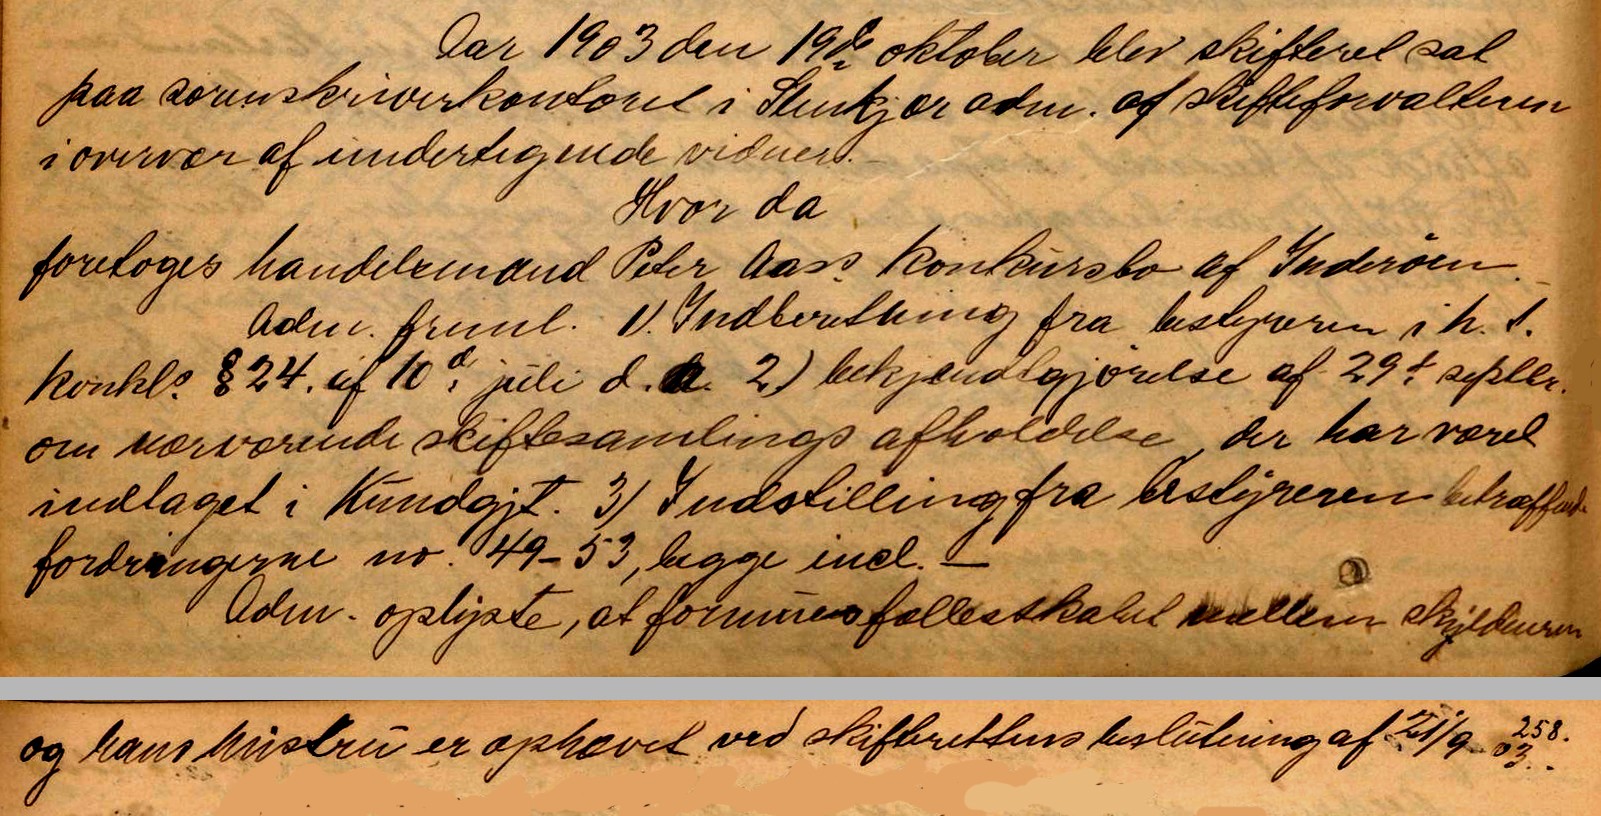 Aar 1903 den 19de oktober blev skifteret sat
paa sorenskriverkontoret i Stenkjær adm. af skifteforvalteren
i overvær af undertegnede vidner.
Hvor da
foretoges handelsmand Peter Aas's konkursbo af Inderøen.
Adm. freml. 1). Indberetning fra bestyreren i h. t.
konkl.s § 24. af 10d. juli d. a. 2) bekjendtgjørelse af 29d. septbr.
om nærværende skiftesamlings afholdelse, der har været
indtaget i Kundgjt. 3) Indstilling fra bestyreren betræffende
fordringerne no. 49-53, begge incl. —
Adm. oplyste, at formuesfællesskabet mellem skyldneren
og hans hustru er ophævet ved skifterettens beslutning af 21/9 03.
258.